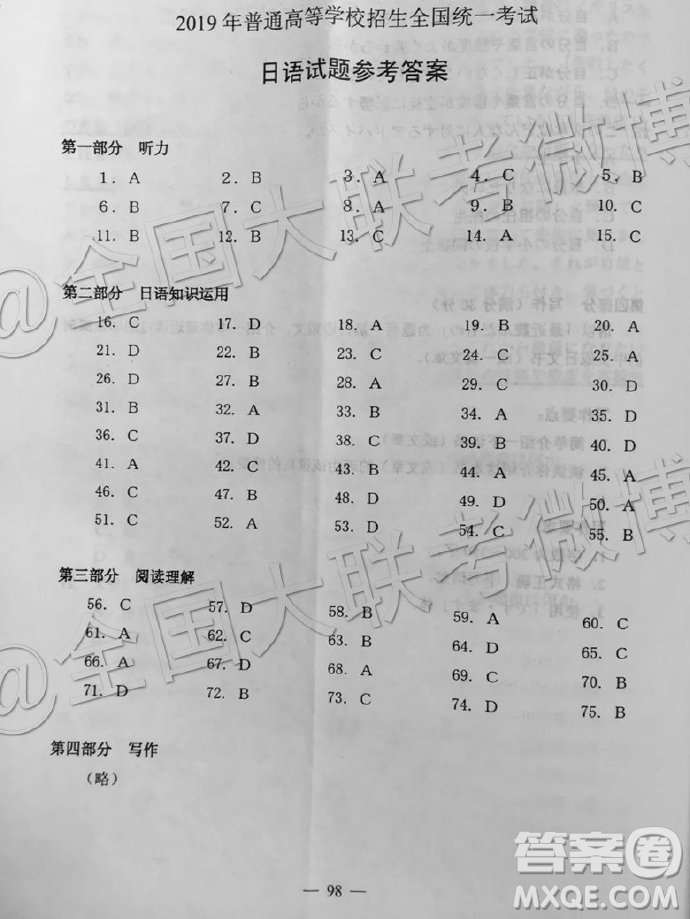 2019年普通高等学校招生全国统一考试
日语试题参考答案
第一部分 听力
1. A 2. B 3. A 4. C 5. B
6. B 7. C 8. A 9. B 10. C
11. B 12. B 13. C 14. A 15. C
第二部分 日语知识运用
16. C 17. D 18. A 19. B 20. A
21. D 22. B 23. C 24. C 25. A
26. D 27. B 28. A 29. C 30. D
31. B 32. A 33. B 34. A 35. D
36. C 37. D 38. C 39. B 40. D
41. A 42. C 43. B 44. A 45. A
46. C 47. B 48. D 49. D 50. A
51. C 52. A 53. D 54. C 55. B
第三部分 阅读理解
56. C 57. D 58. B 59. A 60. C
61. A 62. C 63. B 64. D 65. C
66. A 67. D 68. A 69. C 70. B
71. D 72. B 73. C 74. D 75. B
第四部分 写作
(略)
— 98 —
@全国大联考微博
@全国大联考微博
答案卷
MXQE.COM